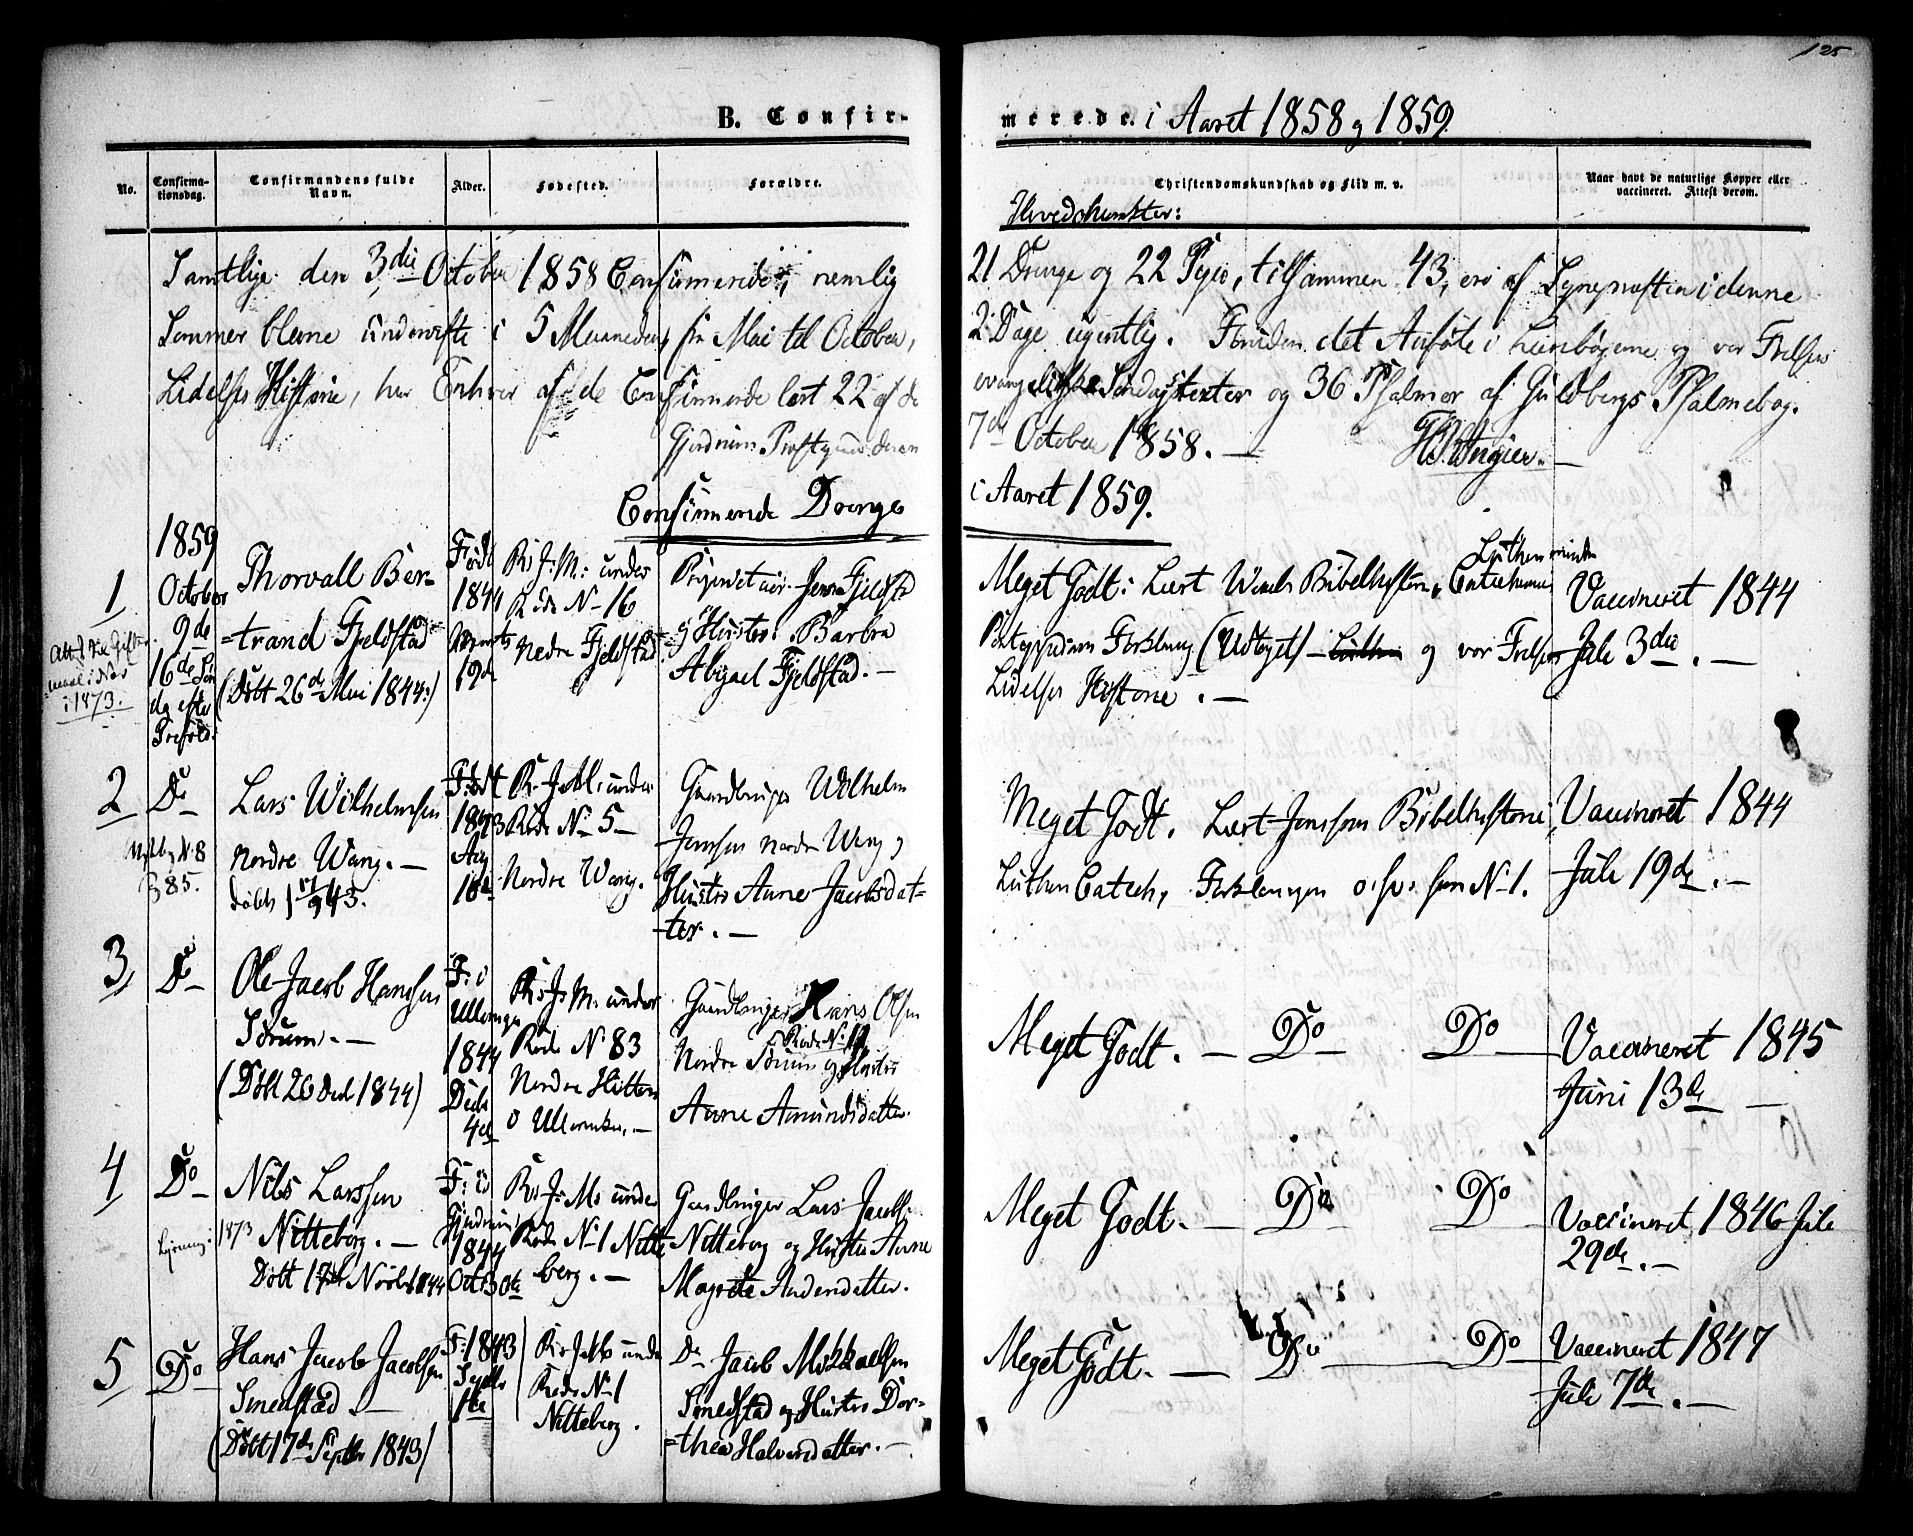 125
B. Confir-
merede. i Aaret 1858 og 1859
No.
Confirma-
tionsdag.
Confirmandens fulde
Navn.
Alder.
Fødested.
Forældre.
Christendomskundskab og Flid m. v.
Naar havt de naturlige Kopper eller
vaccineret. Attest derom.
Samtlige den 3die October 1858 Confirmerede, nemlig
Sommer blevne underviste i 5 Maaneder, fra Mai til October,
Lidelses Historie, har Enhver af de Confirmerede lært 22 af de
Gjerdrum
21 Drenge og 22 Piger, tilsammen 43, ere af i denne
2 Dage ugentlig. Foruden det Anførte i Lærebøgerne og vor Frelsers
evangeliske Søndagstexter og 36 Psalmer af Guldbergs Psalmebog.
7de October 1858. —
Confirmerede Drenge
i Aaret 1859.
1
1859
October
9de
16de Søn
dag efter
Trefold:
i 1873.
Thorvall Ber-
=trand Fjeldstad
(Døbt 26de Mai 1844)
Født
1844
Marts
19de
R: J: M: under
Rode N- 16
nedre Fjeldstad
Proprietair Jens Fjeldstad
og Hustro: Barbra
Abigael Fjeldstad. —
Meget Godt: Lært Bibelhistorie, Luthers mindre Catechismus
Forklaring (Udtoget) — Luthers og vor Frelsers
Lidelses Historie. —
Vaccineret 1844
Juli 3die. —
2
Do —
N. 8
§ 85.
Lars Wilhelmsen
nordre Wang. —
døbt 17/9 43.
Født
1843
Aug
18de
R: J: M: under
Rode N- 5 —
Nordre Wang.
Gaardbruger Wilhelm
Jensen nordre Wang,
Hustro Anne Jacobsdat-
-ter. —
Meget Godt. Lært Jenssens Bibelhistorie,
Luthers Catech, Forklaringen o. s. v. som N- 1.
Vaccineret 1844
Juli 19de. —
3
Do —
Ole Jacob Hanssen
Sørum. —
(Døbt 26 Dec 1844)
F: i
Ullensager
1844
Decbr
4de
R: J: M: under
Rode N: 83
Nordre
o Ullensaker. —
Gaardbruger Hans Olsen
Rode N: 12
Nordre Sørum og Hustro
Anne Amundsdatter.
Meget Godt. — Do — Do —
Vaccineret 1845
Juni 13de —
4
Do —
1873
Nils Larssen
Nitteberg. —
Døbt 17de Novbr 1844
F: i
Gjerdrum
1844
Oct 30te
R: J: M: under
Rode N- 1 Nitte-
berg. —
Gaardbruger Lars Jacobs:
Nitteberg og Hustro Anne
Magrete Andersdatter.
Meget Godt. — Do — Do —
Vaccineret 1846 Juli
29de. —
5
Do —
Hans Jacob Jacobsen
Smedstad. —
(Døbt 17de Septbr 1843)
F: 1843
Septbr
1te
R: J: M: under
Rode N- 1
Nitteberg.
Do Jacob Mikkaelsen
Smedstad og Hustro Dor-
=thea Halvorsdatter. —
Meget Godt. — Do — Do —
Vaccineret 1847
Juli 7de. —